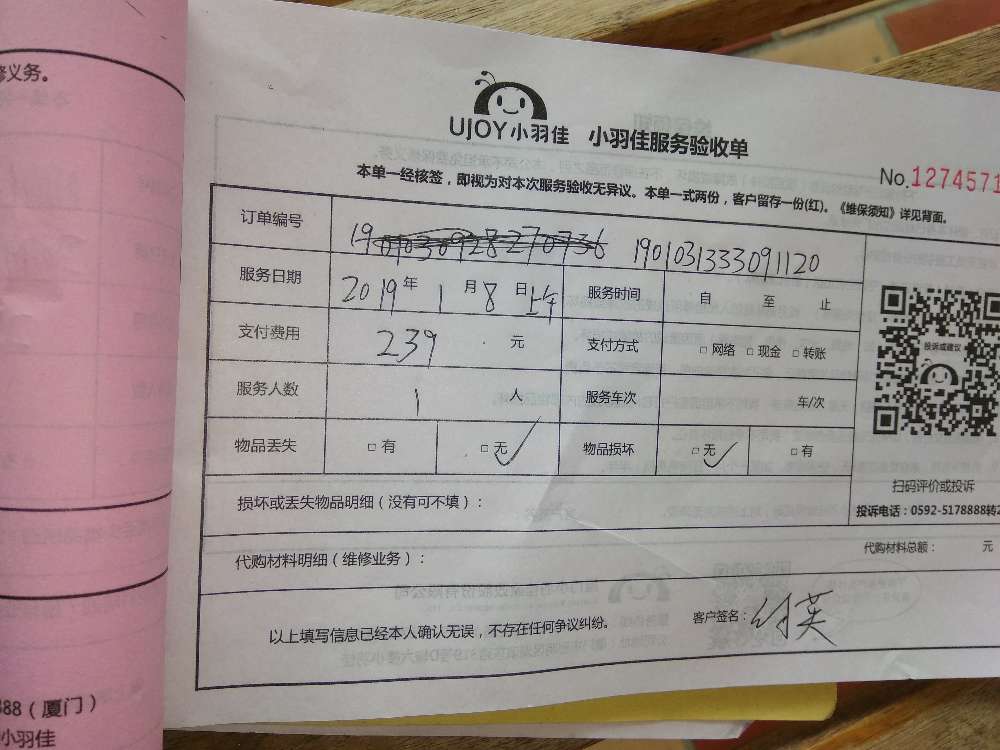 修义务。
UJOY小羽佳 小羽佳服务验收单
No.1274571
本单一经核签，即视为对本次服务验收无异议。本单一式两份，客户留存一份(红)。《维保须知》详见背面。
订单编号 1901031333091120
服务日期 2019年 1月8日上午 服务时间 自 至 止
支付费用 239 元 支付方式 □网络 □现金 □转账
服务人数 1 人 服务车次 车/次
物品丢失 □有 □无✓ 物品损坏 □无✓ □有
投诉或建议
扫码评价或投诉
投诉电话：0592-5178888转2
损坏或丢失物品明细（没有可不填）：
代购材料明细（维修业务）： 代购材料总额： 元
以上填写信息已经本人确认无误，不存在任何争议纠纷。 客户签名：
88（厦门）
小羽佳